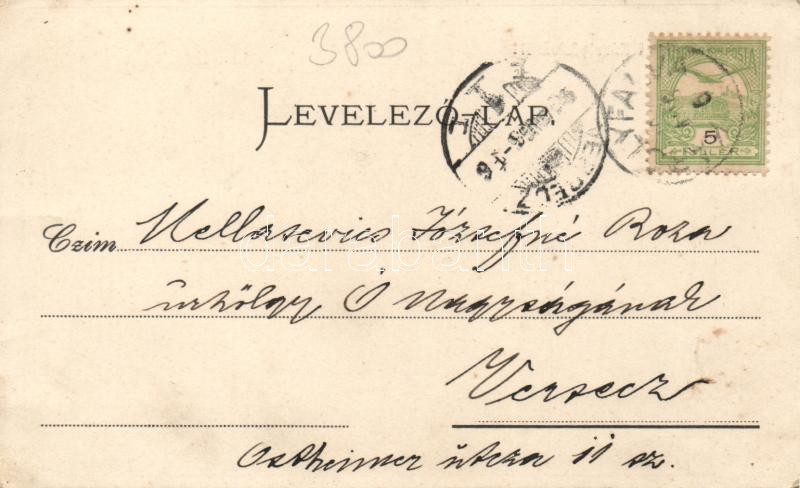 3800
LEVELEZŐ-LAP.
MAGYAR KIR. POSTA
5
FILLÉR
Czim Mellasevics Józsefné Roza
úrhölgy Ő Nagyságának
Versecz
Ostheimer útcza 11 sz.
darabanth